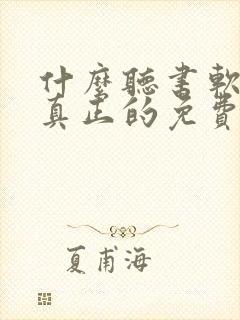 什麼聽書軟
真正的免費
夏甫海